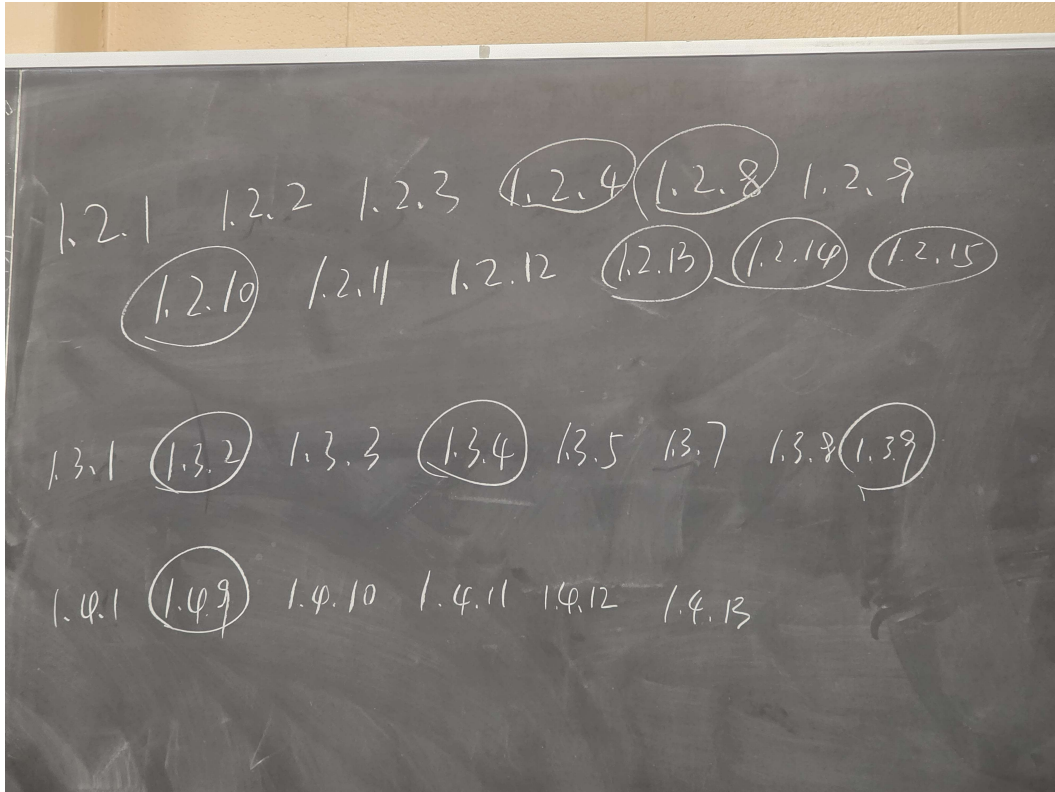 1.2.1 1.2.2 1.2.3 1.2.4 1.2.8 1.2.9
1.2.10 1.2.11 1.2.12 1.2.13 1.2.14 1.2.15
1.3.1 1.3.2 1.3.3 1.3.4 1.3.5 1.3.7 1.3.8 1.3.9
1.4.1 1.4.9 1.4.10 1.4.11 1.4.12 1.4.13